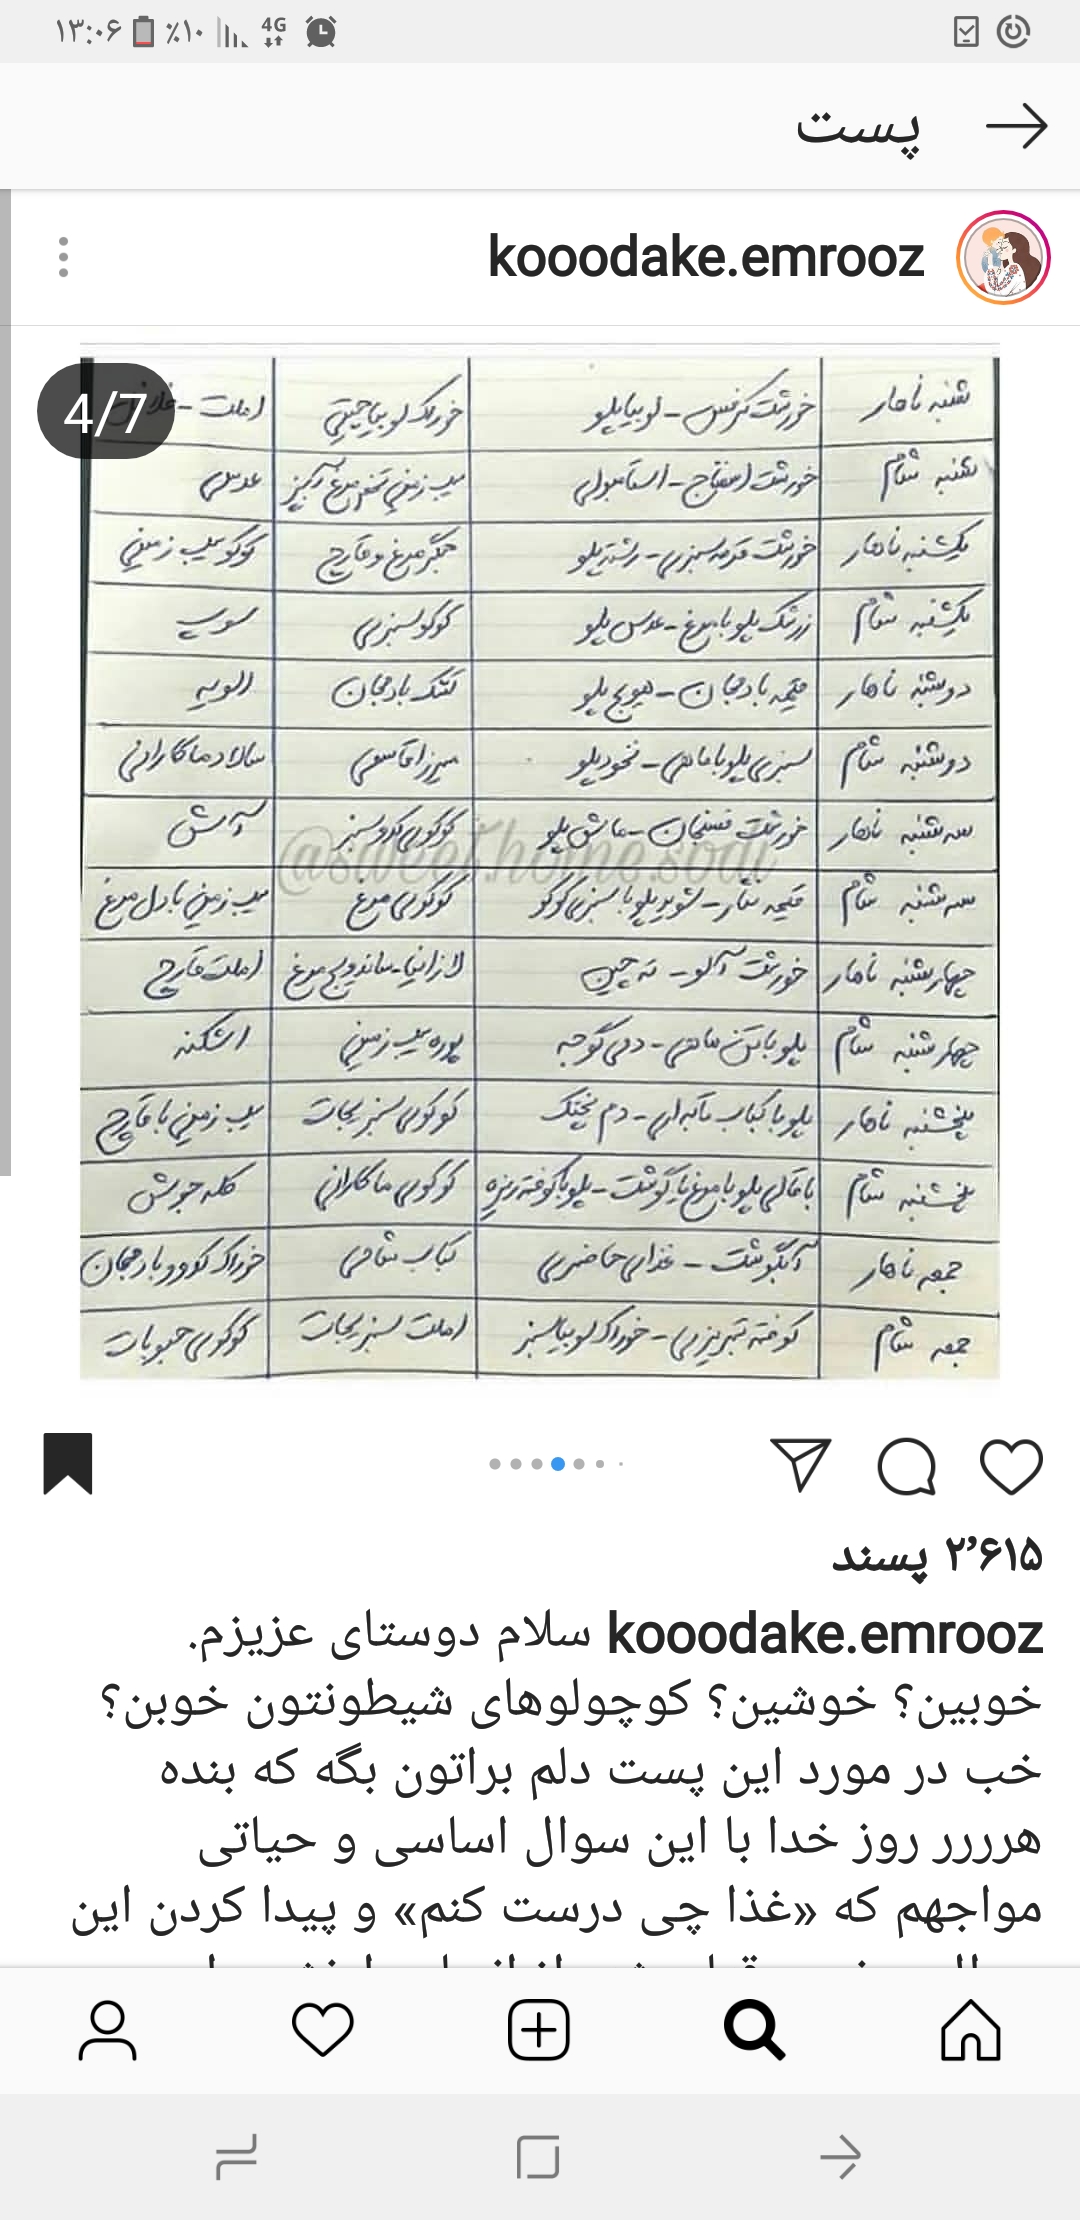 ۱۳:۰۶ ٪۱۰ 4G
پست
kooodake.emrooz
4/7
شنبه ناهار خورشت کرفس - لوبیاپلو خوراک لوبیاچیتی املت -
شنبه شام خورشت اسفناج - استامبولی سیب زمینی تخم مرغ آبپز عدسی
یکشنبه ناهار خورشت قرمه سبزی - رشته پلو جگر مرغ و قارچ کوکو سیب زمینی
یکشنبه شام زرشک پلو با مرغ - عدس پلو کوکو سبزی سوپ
دوشنبه ناهار قیمه بادمجان - هویج پلو کشک بادمجان الویه
دوشنبه شام سبزی پلو با ماهی - نخود پلو میرزا قاسمی سالاد ماکارانی
سه شنبه ناهار خورشت فسنجان - ماش پلو کوکوی کدو سبز آش
@sweet.home.sodi
سه شنبه شام قیمه نثار - شوید پلو با سبزی کوکو کوکوی مرغ سیب زمینی با دل مرغ
چهارشنبه ناهار خورشت آلو - ته چین لازانیا - ساندویچ مرغ املت قارچ
چهارشنبه شام پلو با تن ماهی - دمی گوجه پوره سیب زمینی اشکنه
پنجشنبه ناهار پلو با کباب تابه ای - دم پختک کوکوی سبزیجات سیب زمینی با قارچ
پنجشنبه شام باقالی پلو با مرغ یا گوشت - پلو با کوفته ریزه کوکوی ماکارانی کله جوش
جمعه ناهار آبگوشت - غذای حاضری کباب شامی خوراک کدو و بادمجان
جمعه شام کوفته تبریزی - خوراک لوبیا سبز املت سبزیجات کوکوی حبوبات
۲٬۶۱۵ پسند
kooodake.emrooz سلام دوستای عزیزم.
خوبین؟ خوشین؟ کوچولوهای شیطونتون خوبن؟
خب در مورد این پست دلم براتون بگه که بنده
هرررر روز خدا با این سوال اساسی و حیاتی
مواجهم که «غذا چی درست کنم» و پیدا کردن این